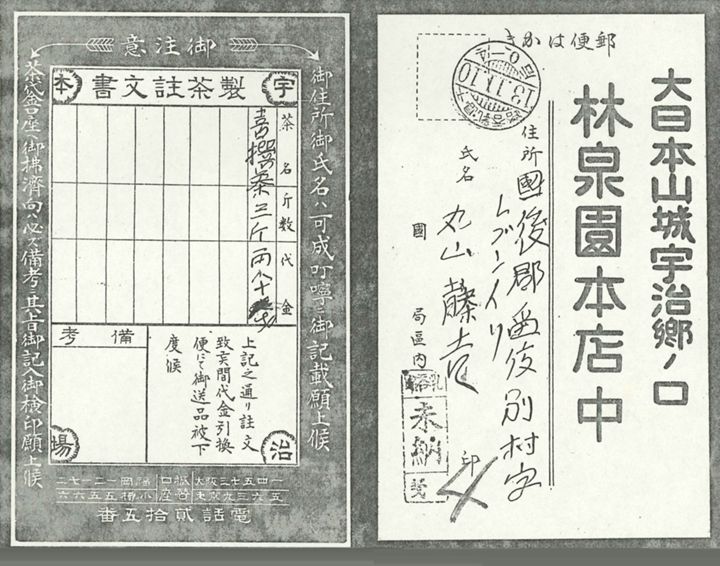 郵便はかき
大日本山城宇治郷ノ口
林泉園本店中
住所
國後郡留夜別村字
氏名
丸山藤吉
國
局區内
印
未納
13.11.10
御注意
御住所御氏名ハ可成叮嚀ニ御記載願上候
宇治本場
製茶註文書
茶名
斤数
代金
喜撰茶三斤
備考
上記之通り註文
致実間代金引換
便にて御送品被下
度候
茶代金振替貯金口座へ御拂済向ハ必ズ備考ニ其旨御記入御検印願上候
電話貳拾五番